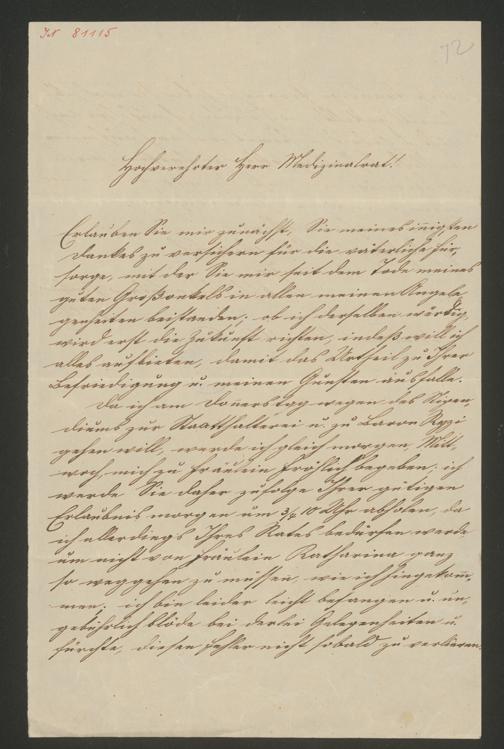 IN 81115
72
Hochverehrter Herr Medizinalrat!
Erlauben Sie mir zunächst, Sie meines innigsten
Dankes zu versichern für die väterliche Für,
sorge, mit der Sie mir seit dem Tode meines
guten Großonkels in allen meinen Angele,
genheiten beistanden; ob ich derselben würdig,
wird erst die Zukunft richten, indeß will ich
alles aufbieten, damit das Urtheil zu Ihrer
Befriedigung u. meinen Gunsten ausfalle.
Da ich am Donnerstag wegen des Stipen,
diums zur Statthalterei u. zu Baron
gehen will, werde ich gleich morgen, Mitt,
woch, mich zu Fräulein Fröhlich begeben; ich
werde Sie daher zufolge Ihrer gütigen
Erlaubnis morgen um 3/4 10 Uhr abholen, da
ich allerdings Ihres Rates bedürfen werde
um nicht von Fräulein Katharina ganz
so weggehen zu müssen, wie ich hingekom,
men; ich bin leider leicht befangen u. un,
gebührlich blöde bei derlei Gelegenheiten u.
fürchte, diesen Fehler nicht sobald zu verlieren.